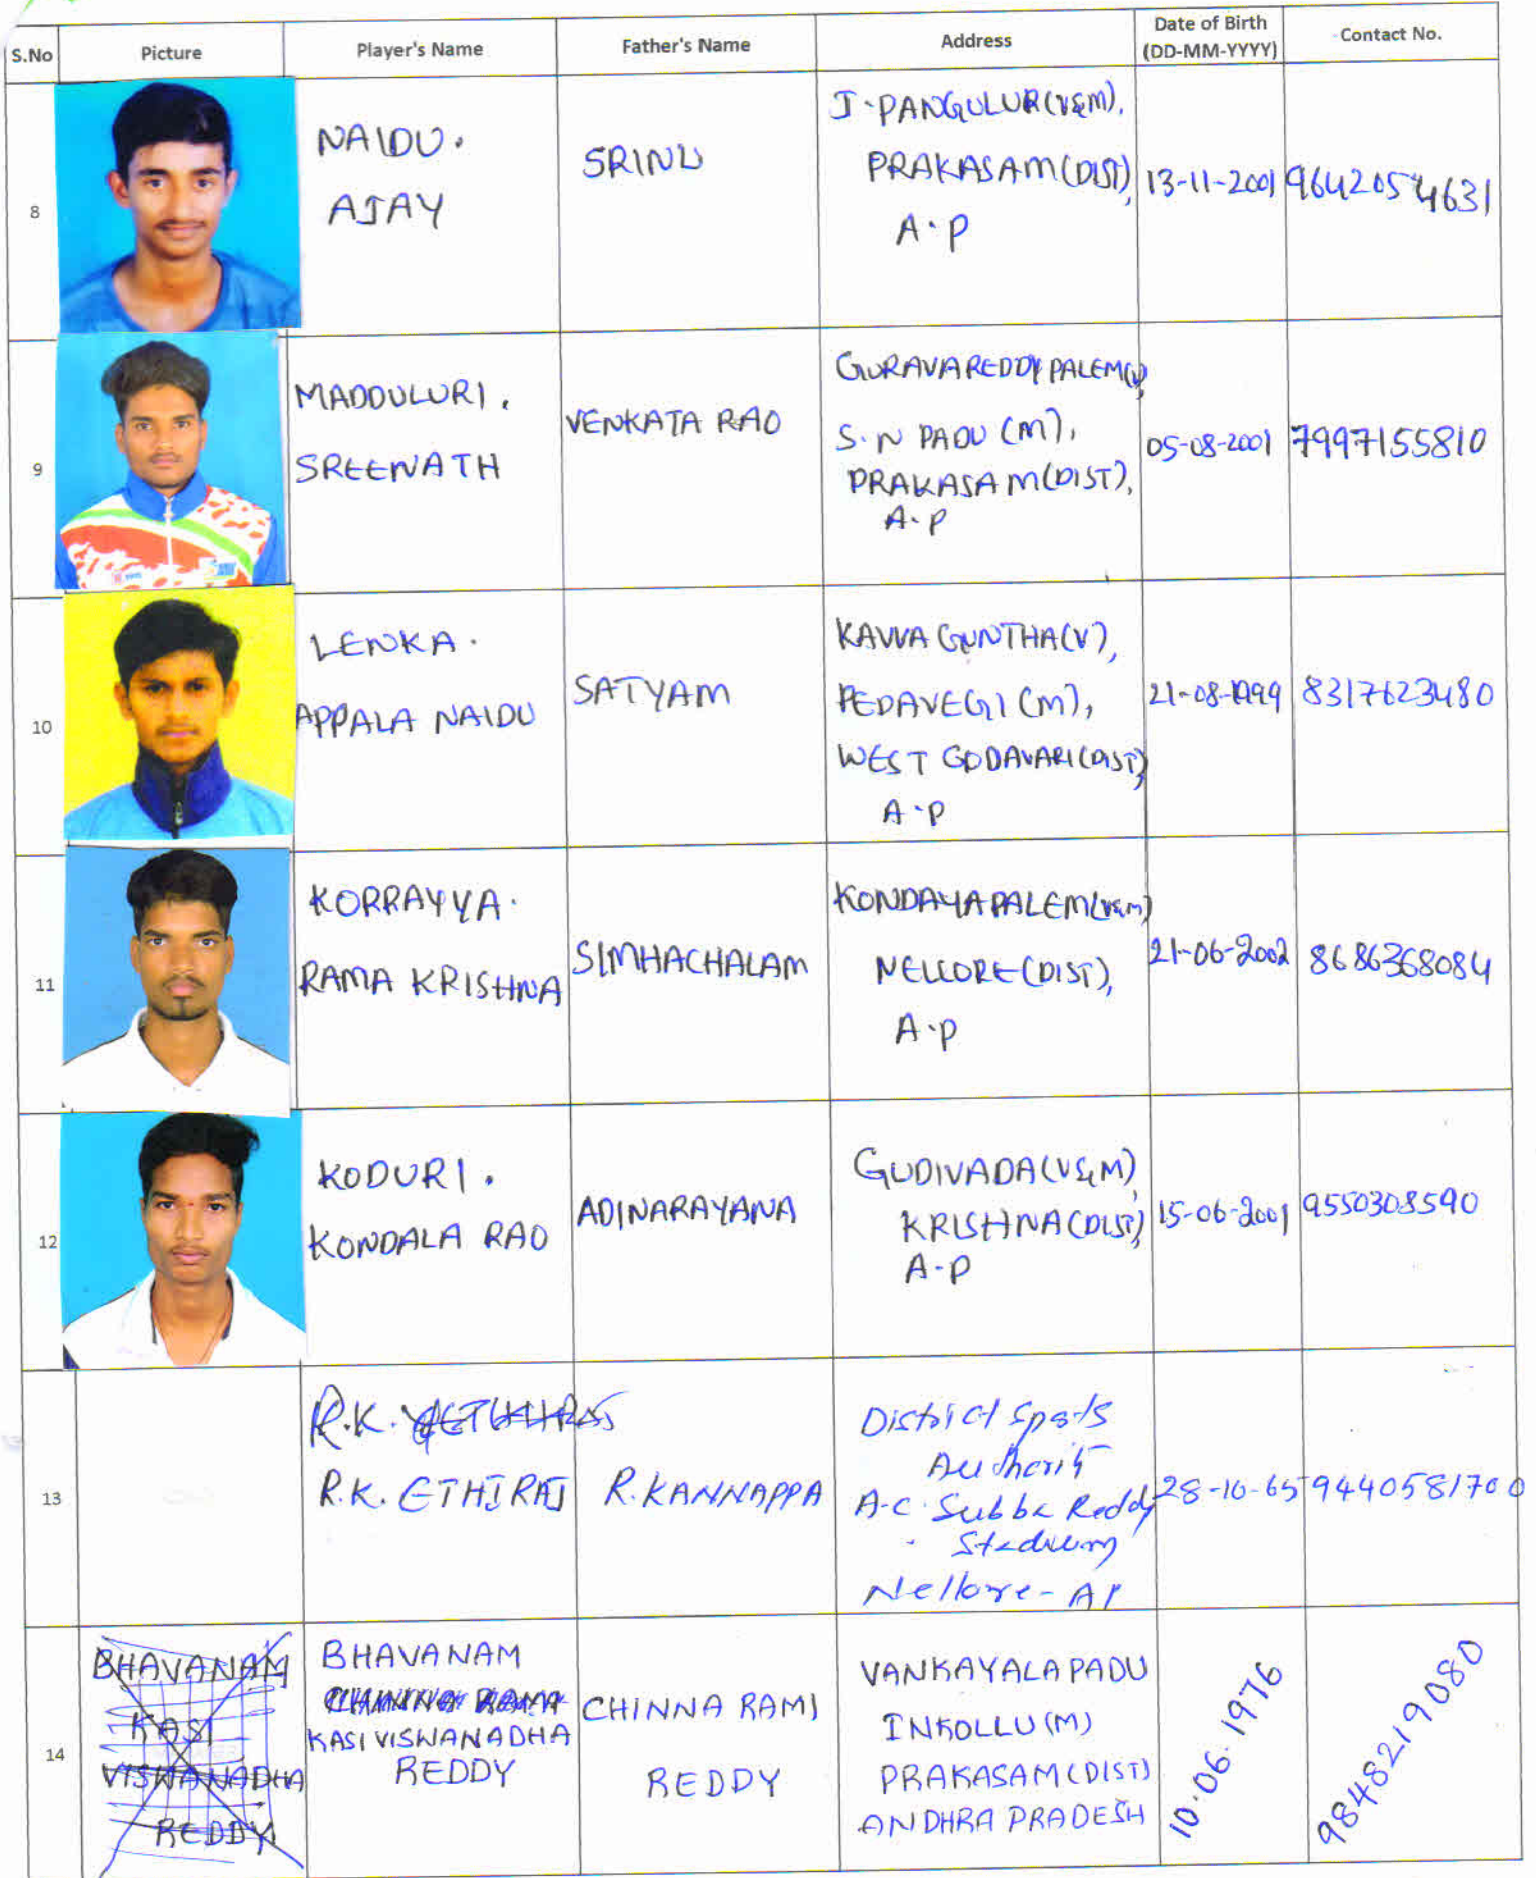 S.No Picture Player's Name Father's Name Address Date of Birth (DD-MM-YYYY) Contact No.
8
NAIDU.
AJAY
SRINU
J. PANGULUR (V&M),
PRAKASAM (DIST),
A.P
13-11-2001
9642054631
9
MADDULURI.
SREENATH
VENKATA RAO
GURAVAREDDY PALEM(V),
S.N PADU (M),
PRAKASAM (DIST),
A.P
05-08-2001
7997155810
10
LENKA.
APPALA NAIDU
SATYAM
KAVVA GUNTHA (V),
PEDAVEGI (M),
WEST GODAVARI (DIST)
A.P
21-08-1999
8317623480
11
KORRAYYA.
RAMA KRISHNA
SIMHACHALAM
KONDAYAPALEM (V&M)
NELLORE (DIST),
A.P
21-06-2002
8686368084
12
KODURI.
KONDALA RAO
ADINARAYANA
GUDIVADA (V&M),
KRISHNA (DIST),
A.P
15-06-2001
9550308590
13
R.K.
R.K. ETHIRAJ
R. KANNAPPA
District Sports
Authority
A.C. Subba Reddy
Stadium
Nellore - AP
28-10-65
9440581700
14
BHAVANAM
KASI
VISWANADHA
REDDY
BHAVANAM
CHINNA RAMA
KASI VISWANADHA
REDDY
CHINNA RAMI
REDDY
VANKAYALAPADU
INKOLLU (M)
PRAKASAM (DIST)
ANDHRA PRADESH
10.06.1976
9848219080